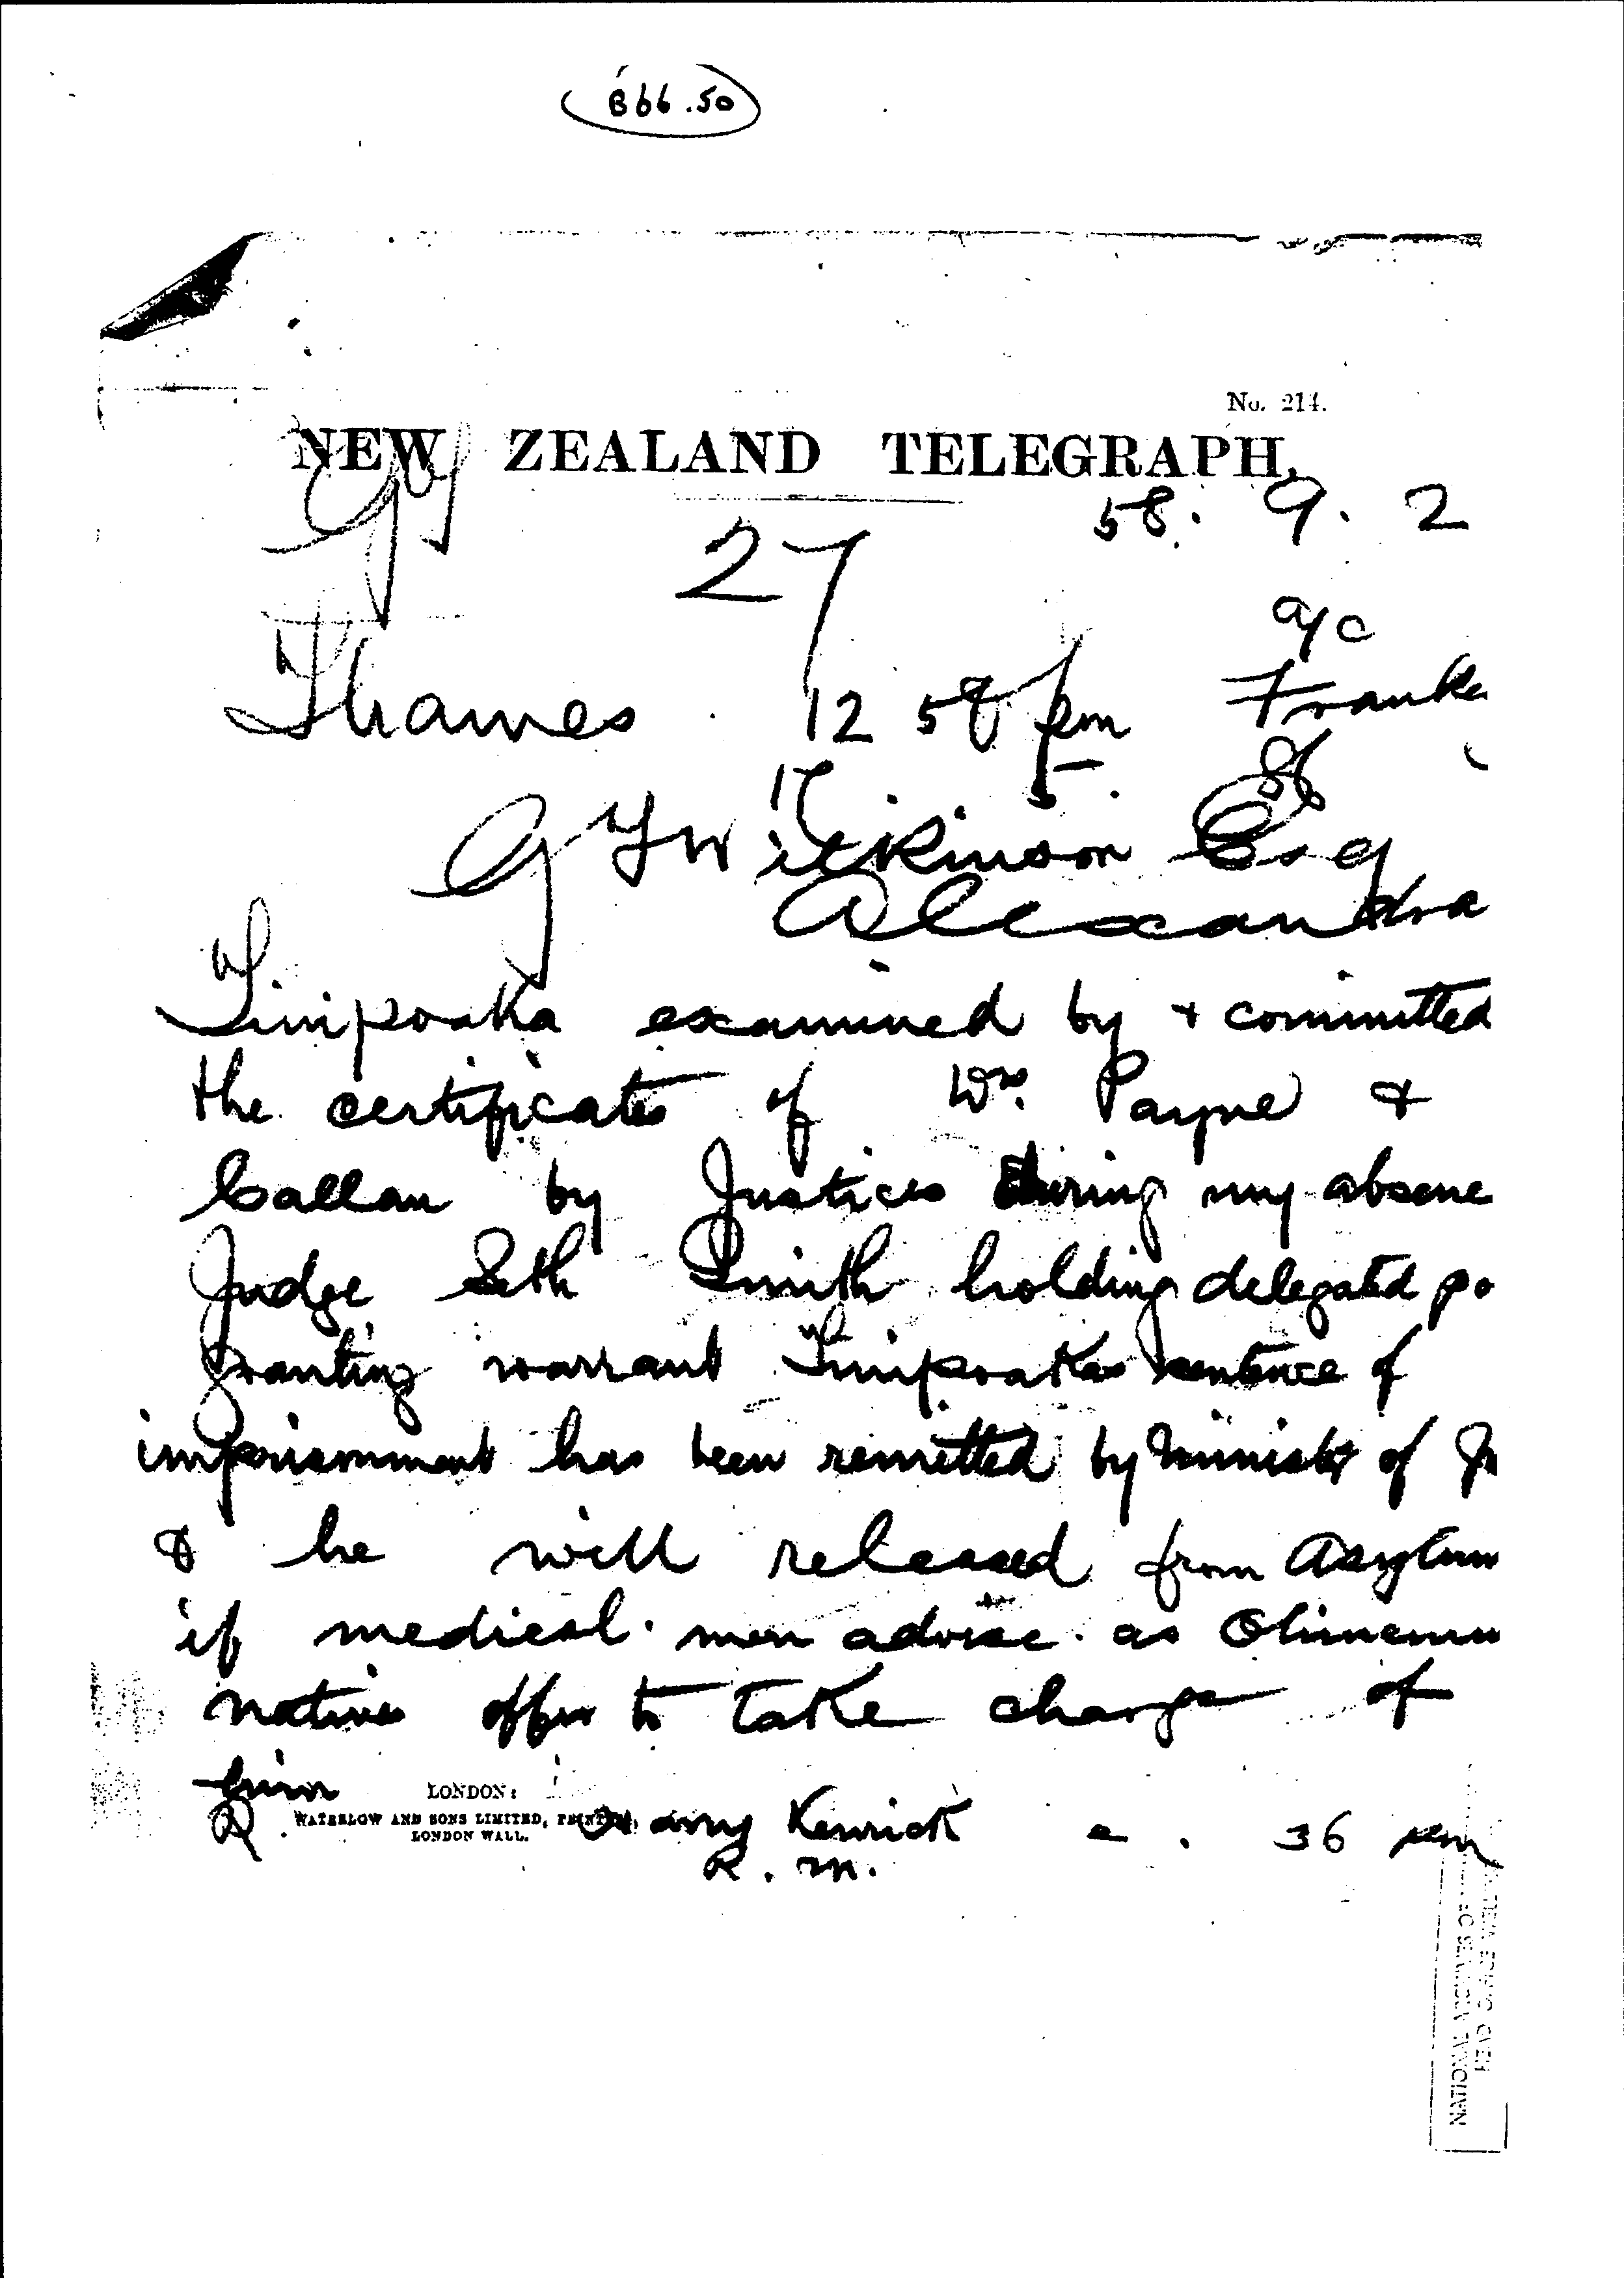 B66.50
No. 214.
NEW ZEALAND TELEGRAPH.
58. 9. 2
27
a/c
Thames 12 58 pm Franke
17 5. 86
G T Wilkinson Esq
Alexandra
Tinipoaka examined by + committed
the certificates of Drs. Payne &
Callan by Justices during my absence
Judge Seth Smith holding delegated po
granting warrant Tinipoakas sentence of
imprisonment has been remitted by minister of Ju
& he will released from Asylum
if medical men advise as Ohinemu
natives offer to take charge of
him
LONDON:
WATERLOW AND SONS LIMITED, PRINTERS,
LONDON WALL.
Harry Kenrick 36
R. M.
NATIONAL ARCHIVES OF
HEAD OFFICE WELL